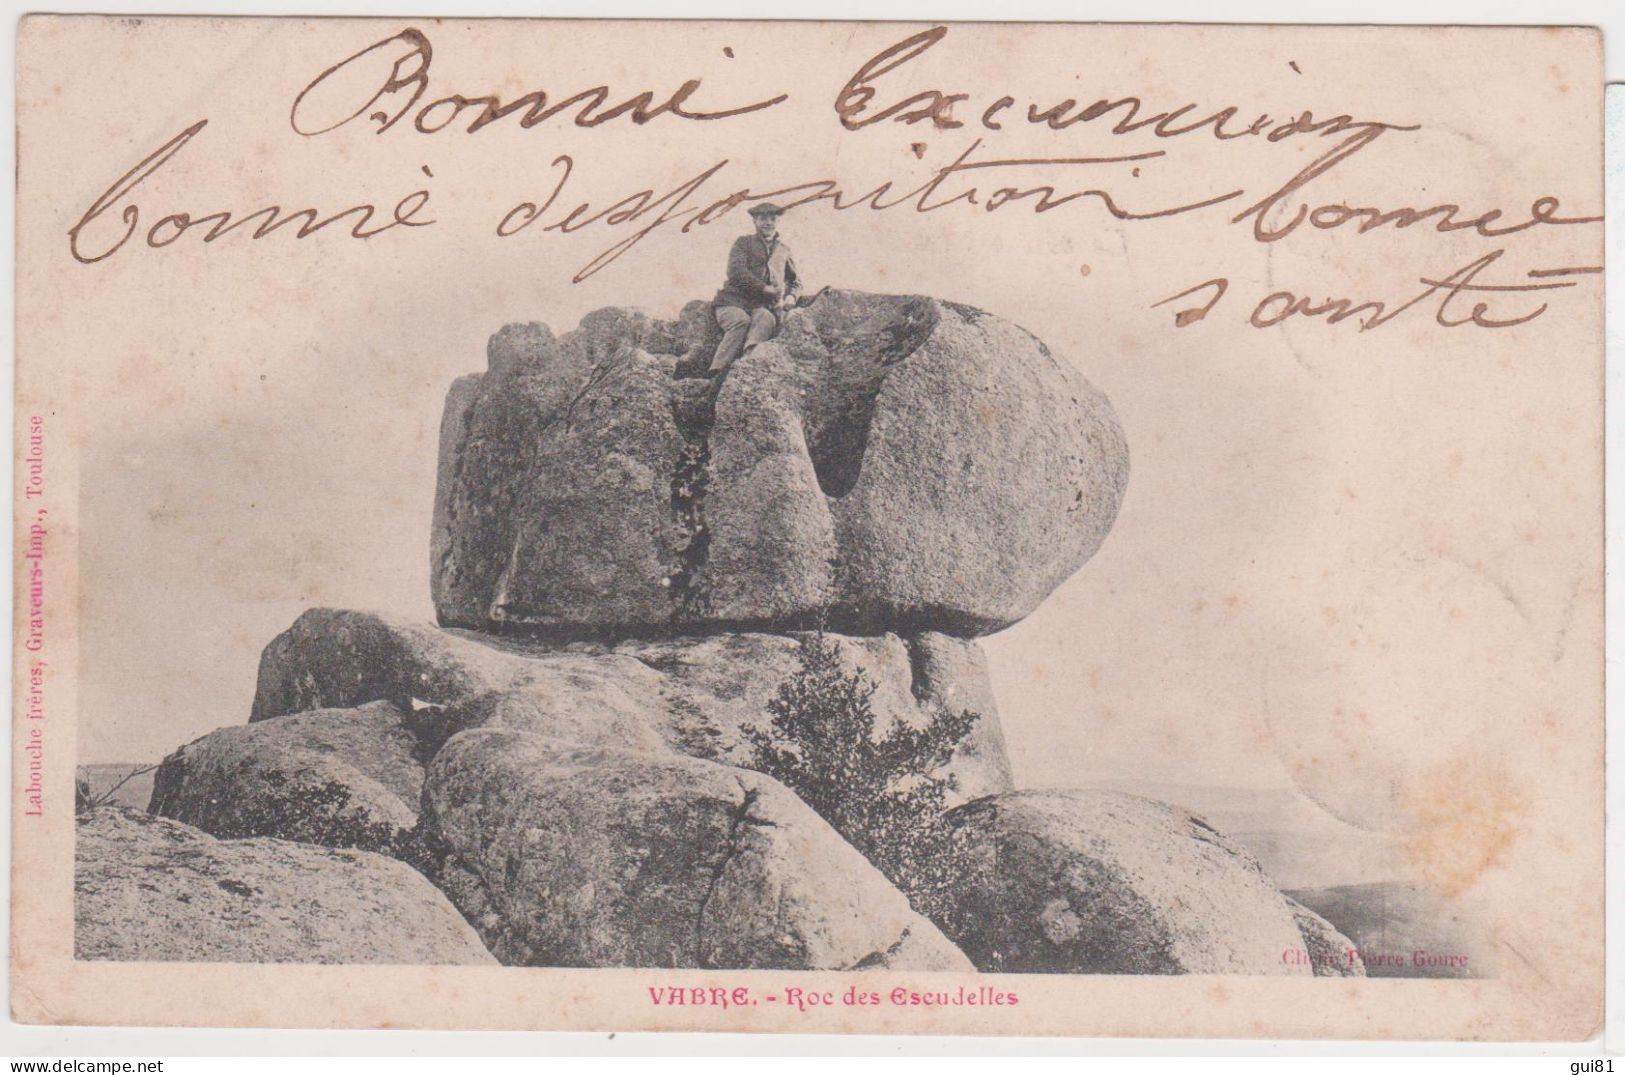 Bonne excursion
bonne disposition bonne
santé
Labouche frères, Graveurs-Imp., Toulouse
Cliché Pierre Goure
VABRE. - Roc des Escudelles
gui81